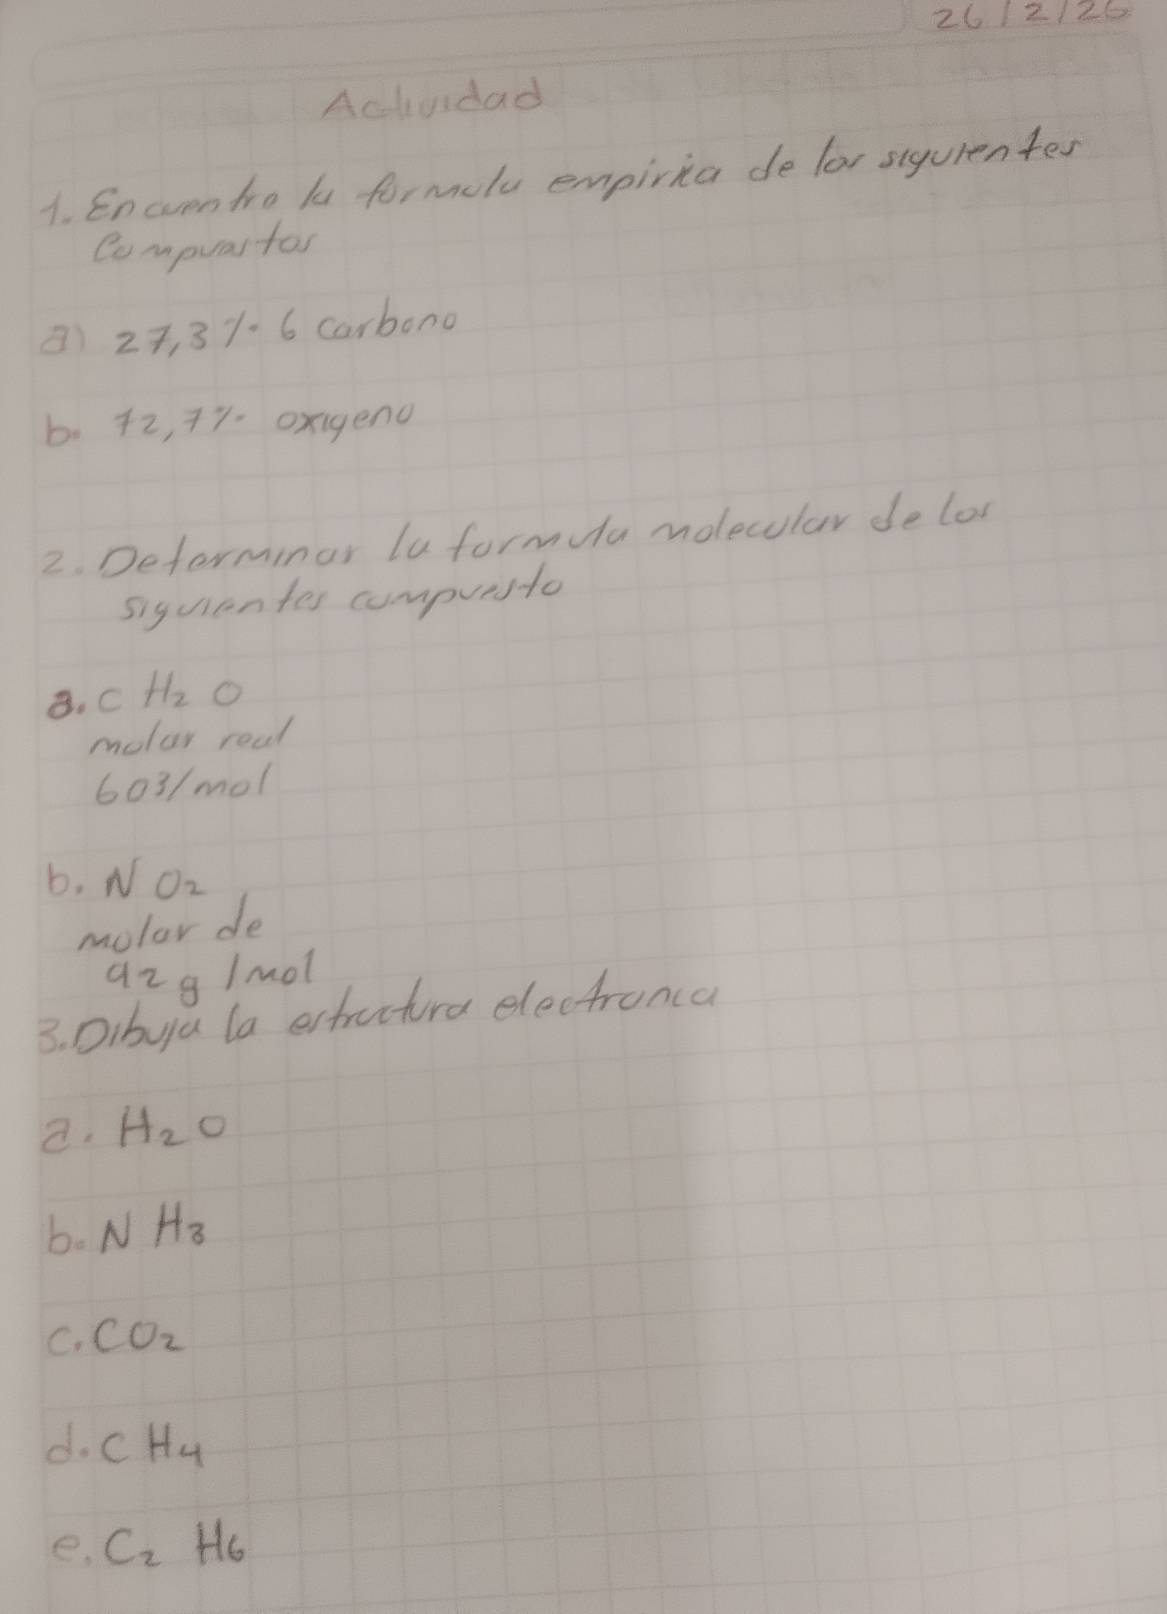 26/2/26
Actividad
1. Encuentra la formula empirica de los siguientes
Compuestos
a) 27,3 % 6 carbono
b. 72,7 % oxigeno
2. Determinar la formula molecular de los
siguientes compuesto
a. CH2O
molar real
603/mol
b. NO2
molar de
92g/mol
3. Dibuja la estructura electronica
a. H2O
b. NH3
c. CO2
d. CH4
e. C2 H6